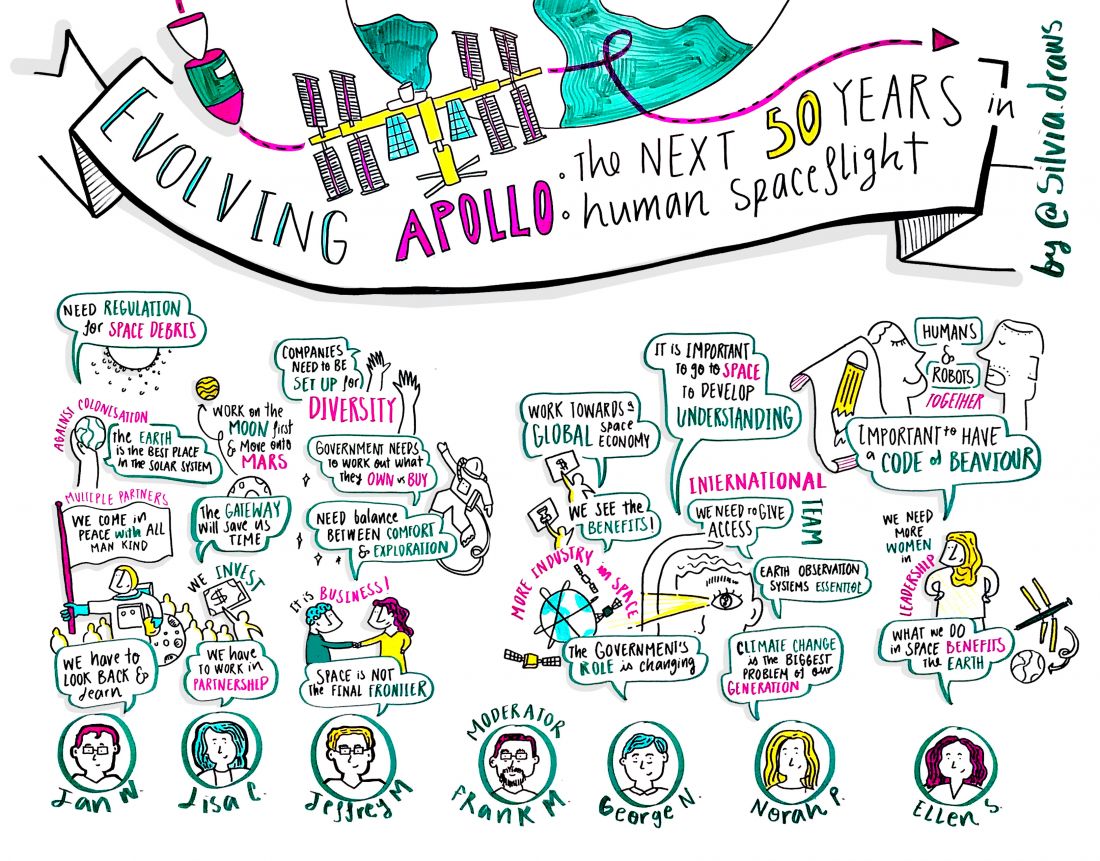 EVOLVING APOLLO: The NEXT 50 YEARS in
human spaceflight
by @Silvia.draws
NEED REGULATION
for SPACE DEBRIS
AGAINST COLONISATION
The EARTH
is the BEST PLACE
in the SOLAR SYSTEM
MULTIPLE PARTNERS
WE COME in
PEACE with ALL
MAN KIND
WE HAVE to
LOOK BACK &
learn
Jan W.
WORK on the
MOON first
& MOVE onto
MARS
The GATEWAY
will save us
TIME
WE INVEST
WE HAVE
TO WORK in
PARTNERSHIP
Lisa C.
COMPANIES
NEED to BE
SET UP for
DIVERSITY
GOVERNMENT NEEDS
to WORK out what
They OWN vs BUY
NEED balance
BETWEEN COMFORT
& EXPLORATION
It is BUSINESS!
SPACE is NOT
The FINAL FRONTIER
Jeffrey M
MODERATOR
FRANK M.
WORK TOWARDS a
GLOBAL space
ECONOMY
WE SEE the
BENEFITS!
MORE INDUSTRY in SPACE
The GOVERNMENT'S
ROLE is changing
George N.
IT is IMPORTANT
to go to SPACE
TO DEVELOP
UNDERSTANDING
INTERNATIONAL
TEAM
WE NEED to GIVE
ACCESS
EARTH OBSERVATION
SYSTEMS ESSENTIAL
CLIMATE CHANGE
is the BIGGEST
PROBLEM of our
GENERATION
Norah P.
HUMANS
&
ROBOTS
TOGETHER
IMPORTANT to HAVE
a CODE of BEAVIOUR
WE NEED
MORE
WOMEN
in
LEADERSHIP
WHAT WE DO
in SPACE BENEFITS
the EARTH
ELLEN S.